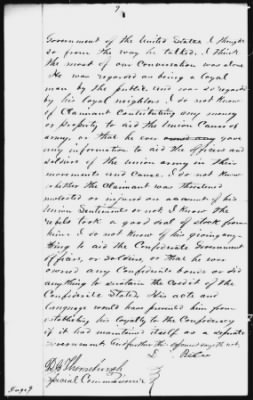 7
Government of the United States. I thought
so from the way he talked. I think
the most of our Conversation was alone
He was regarded as being a loyal
man by the public and was so regarded
by his loyal neighbors. I do not know
of Claimant Contributing any money
or property to aid the Union Cause or
army, or that he ever gave
any information to aid the officers and
soldiers of the union army in their
movements and Cause. I do not know
whether the Claimant was threatened
molested or injured on account of his
Union Sentiments or not. I know the
rebels took a good deal of stock from
him. I do not know of his giving any-
thing to aid the Confederate Government
officers, or soldiers, or that he ever
owned any Confederate bonds or did
anything to sustain the Credit of the
Confederate States. His acts and
language would have prevented him from
establishing his loyalty to the Confederacy
if it had maintained itself as a separate
Government. And further this deponent sayeth not.
D. C. Thornburgh
Special Commissioner
Page 7